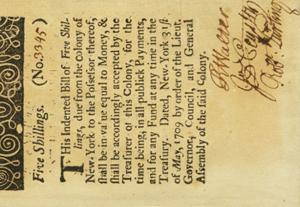 Five Shillings. (No.3345)
THis Indented Bill of Five Shil-
lings, due from the Colony of
New-York to the Possessor thereof,
shall be in value equal to Money, &
shall be accordingly accepted by the
Treasurer of this Colony, for the
time being, in all publick Payments,
and for any Fund at any time in the
Treasury. Dated, New-York 31st.
of May, 1709 by order of the Lieut.
Governor, Council, and General
Assembly of the said Colony.